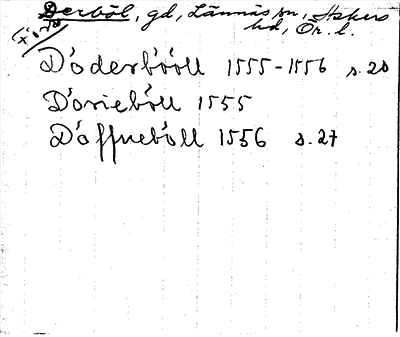 Derböl, gd, Lännäs sn, Askers
hd, Ör. l.
Döderbööll 1555-1556 s. 20
Dörieböll 1555
Döffneböll 1556 s. 27